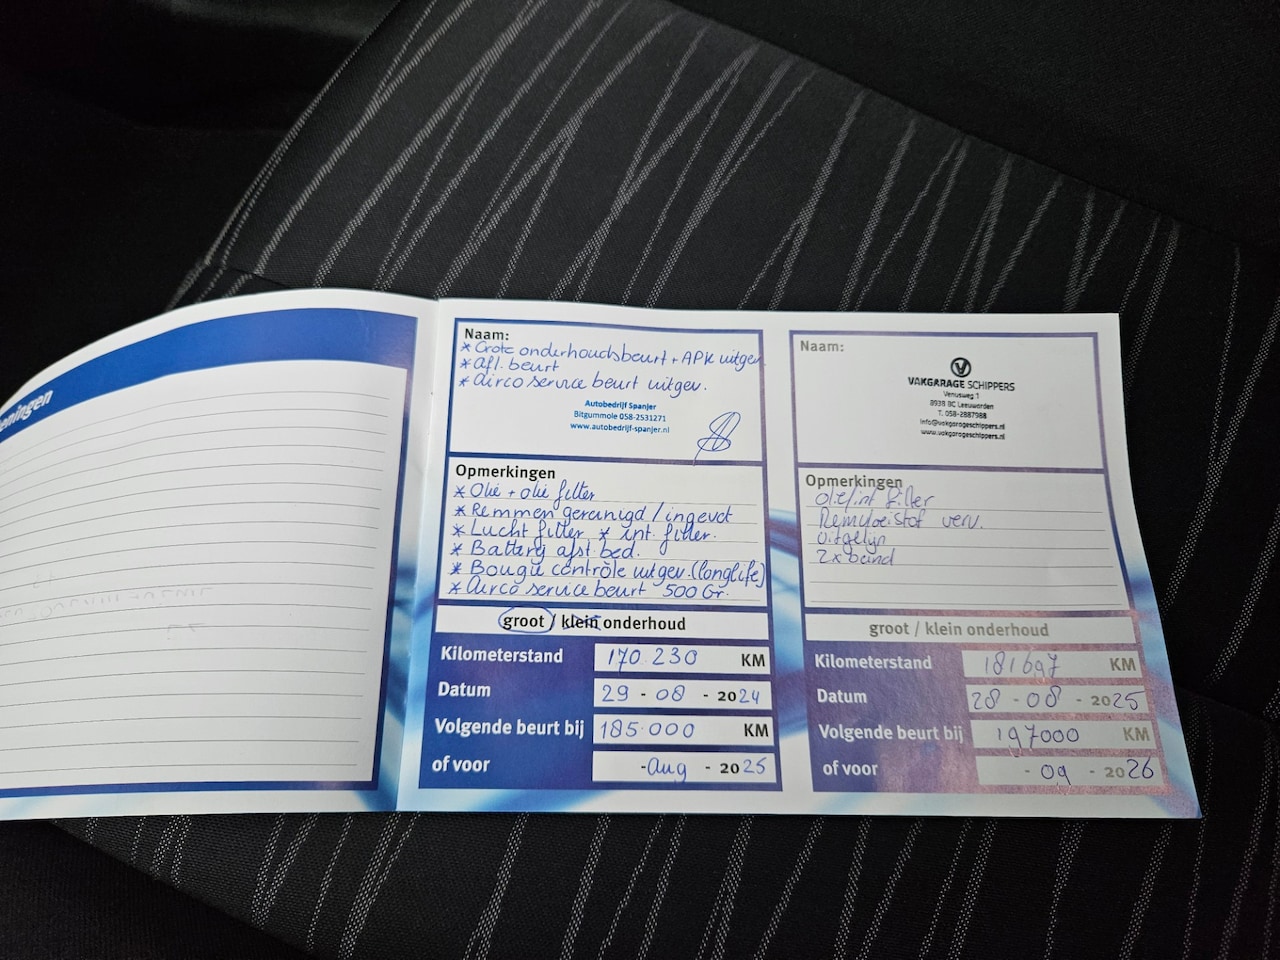 eningen
Naam:
* Grote onderhoudsbeurt + APK uitgev
* afl. beurt
* Airco service beurt uitgev.
Autobedrijf Spanjer
Bitgummole 058-2531271
www.autobedrijf-spanjer.nl
Opmerkingen
* Olie + olie filter
* Remmen gereinigd / ingevet
* Lucht filter * int. filter.
* Battery afst. bed.
* Bougie contrôle uitgev. (longlife)
* Airco service beurt 500 Gr.
groot / klein onderhoud
Kilometerstand 170.230 KM
Datum 29 - 08 - 2024
Volgende beurt bij 185.000 KM
of voor - Aug - 2025
Naam:
VAKGARAGE SCHIPPERS
Venusweg 1
8938 BC Leeuwarden
T. 058-2887988
info@vakgarageschippers.nl
www.vakgarageschippers.nl
Opmerkingen
olie/int filter
Remvloeistof verv.
uitgelijn
2x band
groot / klein onderhoud
Kilometerstand 181697 KM
Datum 28 - 08 - 2025
Volgende beurt bij 197000 KM
of voor - 09 - 2026